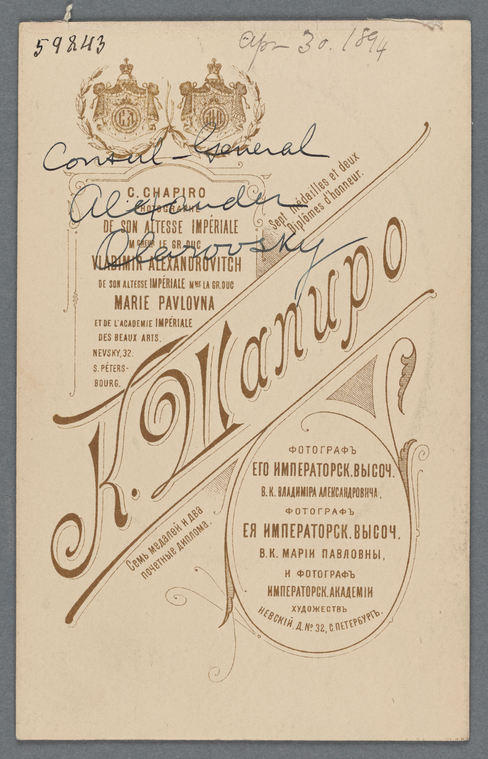 59843
Apr 30. 1894
Consul-General
Alexander
Olarovsky
C. CHAPIRO
PHOTOGRAPHE
DE SON ALTESSE IMPÉRIALE
LE GR. DUC
VLADIMIR ALEXANDROVITCH
DE SON ALTESSE IMPÉRIALE MME LA GR. DUC
MARIE PAVLOVNA
ET DE L'ACADEMIE IMPÉRIALE
DES BEAUX ARTS.
NEVSKY, 32.
S. PÉTERS-
BOURG.
Sept médailles et deux
Diplômes d'honneur.
К. Шапиро
Семь медалей и два
почетные диплома.
ФОТОГРАФЪ
ЕГО ИМПЕРАТОРСК. ВЫСОЧ.
В. К. ВЛАДИМІРА АЛЕКСАНДРОВИЧА,
ФОТОГРАФЪ
ЕЯ ИМПЕРАТОРСК. ВЫСОЧ.
В. К. МАРІИ ПАВЛОВНЫ,
И ФОТОГРАФЪ
ИМПЕРАТОРСК. АКАДЕМІИ
ХУДОЖЕСТВЪ
НЕВСКІЙ, Д. № 32, С. ПЕТЕРБУРГЪ.